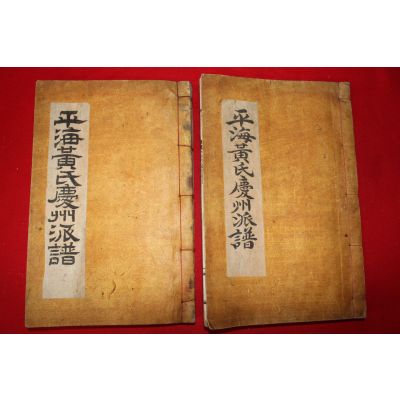 平海黃氏慶州派譜
平海黃氏慶州派譜